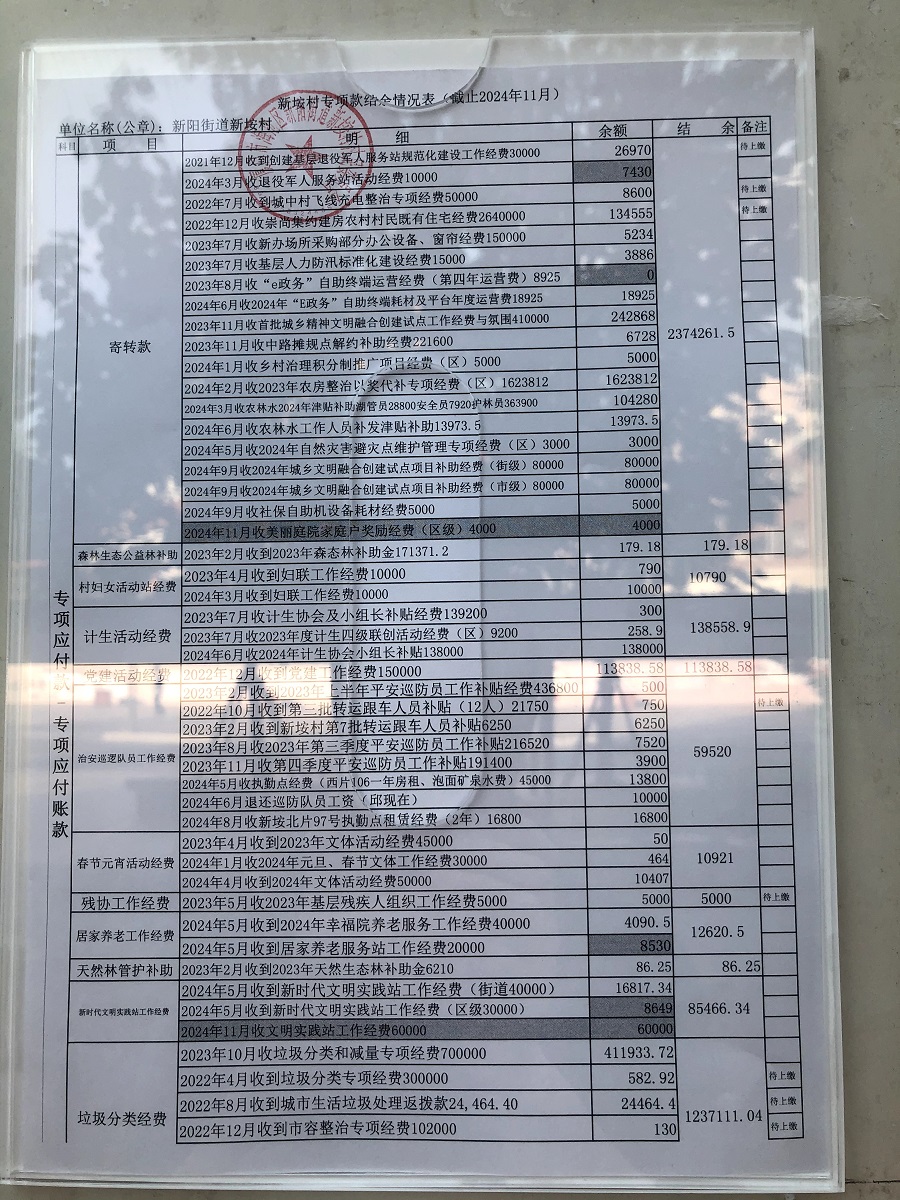 新垵村专项款结余情况表（截止2024年11月）
单位名称(公章)：新阳街道新垵村
科目 项 目 明 细 余额 结 余 备注
专项应付款-专项应付账款
寄转款 2374261.5
2021年12月收到创建基层退役军人服务站规范化建设工作经费30000 26970 待上缴
2024年3月收退役军人服务站活动经费10000 7430
2022年7月收到城中村飞线充电整治专项经费50000 8600 待上缴
2022年12月收崇尚集约建房农村村民既有住宅经费2640000 134555 待上缴
2023年7月收新办场所采购部分办公设备、窗帘经费150000 5234
2023年7月收基层人力防汛标准化建设经费15000 3886
2023年8月收“e政务”自助终端运营经费（第四年运营费）8925 0
2024年6月收2024年“E政务”自助终端耗材及平台年度运营费18925 18925
2023年11月收首批城乡精神文明融合创建试点工作经费与氛围410000 242868
2023年11月收中路摊规点解约补助经费221600 6728
2024年1月收乡村治理积分制推广项目经费（区）5000 5000
2024年2月收2023年农房整治以奖代补专项经费（区）1623812 1623812
2024年3月收农林水2024年津贴补助湖管员28800安全员7920护林员363900 104280
2024年6月收农林水工作人员补发津贴补助13973.5 13973.5
2024年5月收2024年自然灾害避灾点维护管理专项经费（区）3000 3000
2024年9月收2024年城乡文明融合创建试点项目补助经费（街级）80000 80000
2024年9月收2024年城乡文明融合创建试点项目补助经费（市级）80000 80000
2024年9月收社保自助机设备耗材经费5000 5000
2024年11月收美丽庭院家庭户奖励经费（区级）4000 4000
森林生态公益林补助 2023年2月收到2023年森态林补助金171371.2 179.18 179.18
村妇女活动站经费 10790
2023年4月收到妇联工作经费10000 790
2024年3月收到妇联工作经费10000 10000
计生活动经费 138558.9
2023年7月收计生协会及小组长补贴经费139200 300
2023年7月收2023年度计生四级联创活动经费（区）9200 258.9
2024年6月收2024年计生协会小组长补贴138000 138000
党建活动经费 2022年12月收到党建工作经费150000 113838.58 113838.58
治安巡逻队员工作经费 59520
2023年2月收到2023年上半年平安巡防员工作补贴经费436800 500
2022年10月收到第三批转运跟车人员补贴（12人）21750 750 待上缴
2023年2月收到新垵村第7批转运跟车人员补贴6250 6250
2023年8月收2023年第三季度平安巡防员工作补贴216520 7520
2023年11月收第四季度平安巡防员工作补贴191400 3900
2024年5月收执勤点经费（西片106一年房租、泡面矿泉水费）45000 13800
2024年6月退还巡防队员工资（邱现在） 10000
2024年8月收新垵北片97号执勤点租赁经费（2年）16800 16800
春节元宵活动经费 10921
2023年4月收到2023年文体活动经费45000 50
2024年1月收2024年元旦、春节文体工作经费30000 464
2024年4月收到2024年文体活动经费50000 10407
残协工作经费 2023年5月收2023年基层残疾人组织工作经费5000 5000 5000 待上缴
居家养老工作经费 12620.5
2024年5月收到2024年幸福院养老服务工作经费40000 4090.5
2024年5月收到居家养老服务站工作经费20000 8530
天然林管护补助 2023年2月收到2023年天然生态林补助金6210 86.25 86.25
新时代文明实践站工作经费 85466.34
2024年5月收到新时代文明实践站工作经费（街道40000） 16817.34
2024年5月收到新时代文明实践站工作经费（区级30000） 8649
2024年11月收文明实践站工作经费60000 60000
垃圾分类经费 1237111.04
2023年10月收垃圾分类和减量专项经费700000 411933.72
2022年4月收到垃圾分类专项经费300000 582.92 待上缴
2022年8月收到城市生活垃圾处理返拨款24,464.40 24464.4 待上缴
2022年12月收到市容整治专项经费102000 130 待上缴